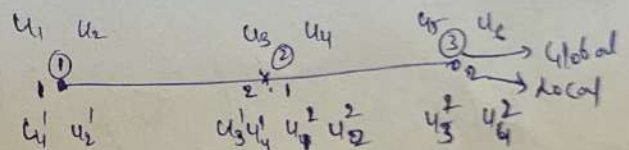 u₁ u₂ u₃ u₄ u₅ u₆
① ② ③ Global
1 2 1 2 Local
u₁¹ u₂¹ u₃¹ u₄¹ u₁² u₂² u₃² u₄²